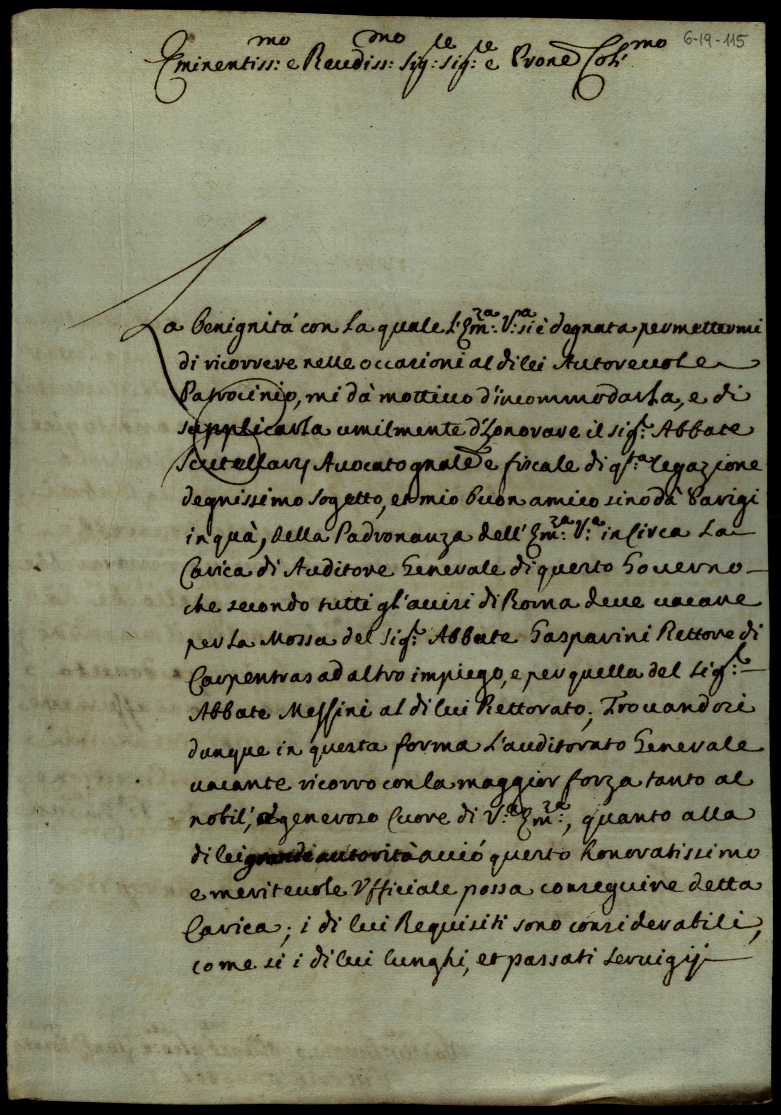 6-19-115
Eminentiss:mo e Reudiss:mo Sig:le Sig:le e Prone Col:mo
La benignità con la quale l'Em:za V:a si è degnata permettermi
di ricorrere nelle occasioni al di lei Autoreuole
Patrocinio, mi dà mottiuo d'incommodarla, e di
supplicarla umilmente d'Honorare il sig:r Abbate
Scutellarij Auocato gnale e fiscale di qta legazione
degnissimo sogetto, et mio buon amico sino dà Parigi
in quà, della Padronanza dell'Em:za V:a in circa la
Carica di Auditore Generale di questo Gouerno
che secondo tutti gl'auisi di Roma deue uacare
per la Mossa del sig:r Abbate Gasparini Rettore di
Carpentras ad altro impiego, e per quella del sig:r
Abbate Messini al di lui Rettorato; Trouandosi
dunque in questa forma l'auditorato Generale
uacante ricorro con la maggior forza tanto al
nobil', e generoso Cuore di V:a Em:za, quanto alla
di lei grande autorità acciò questo honoratissimo
e meriteuole Vfficiale possa conseguire detta
Carica; i di lui Requisiti sono considerabili,
come si i di lui lunghi, et passati seruigij